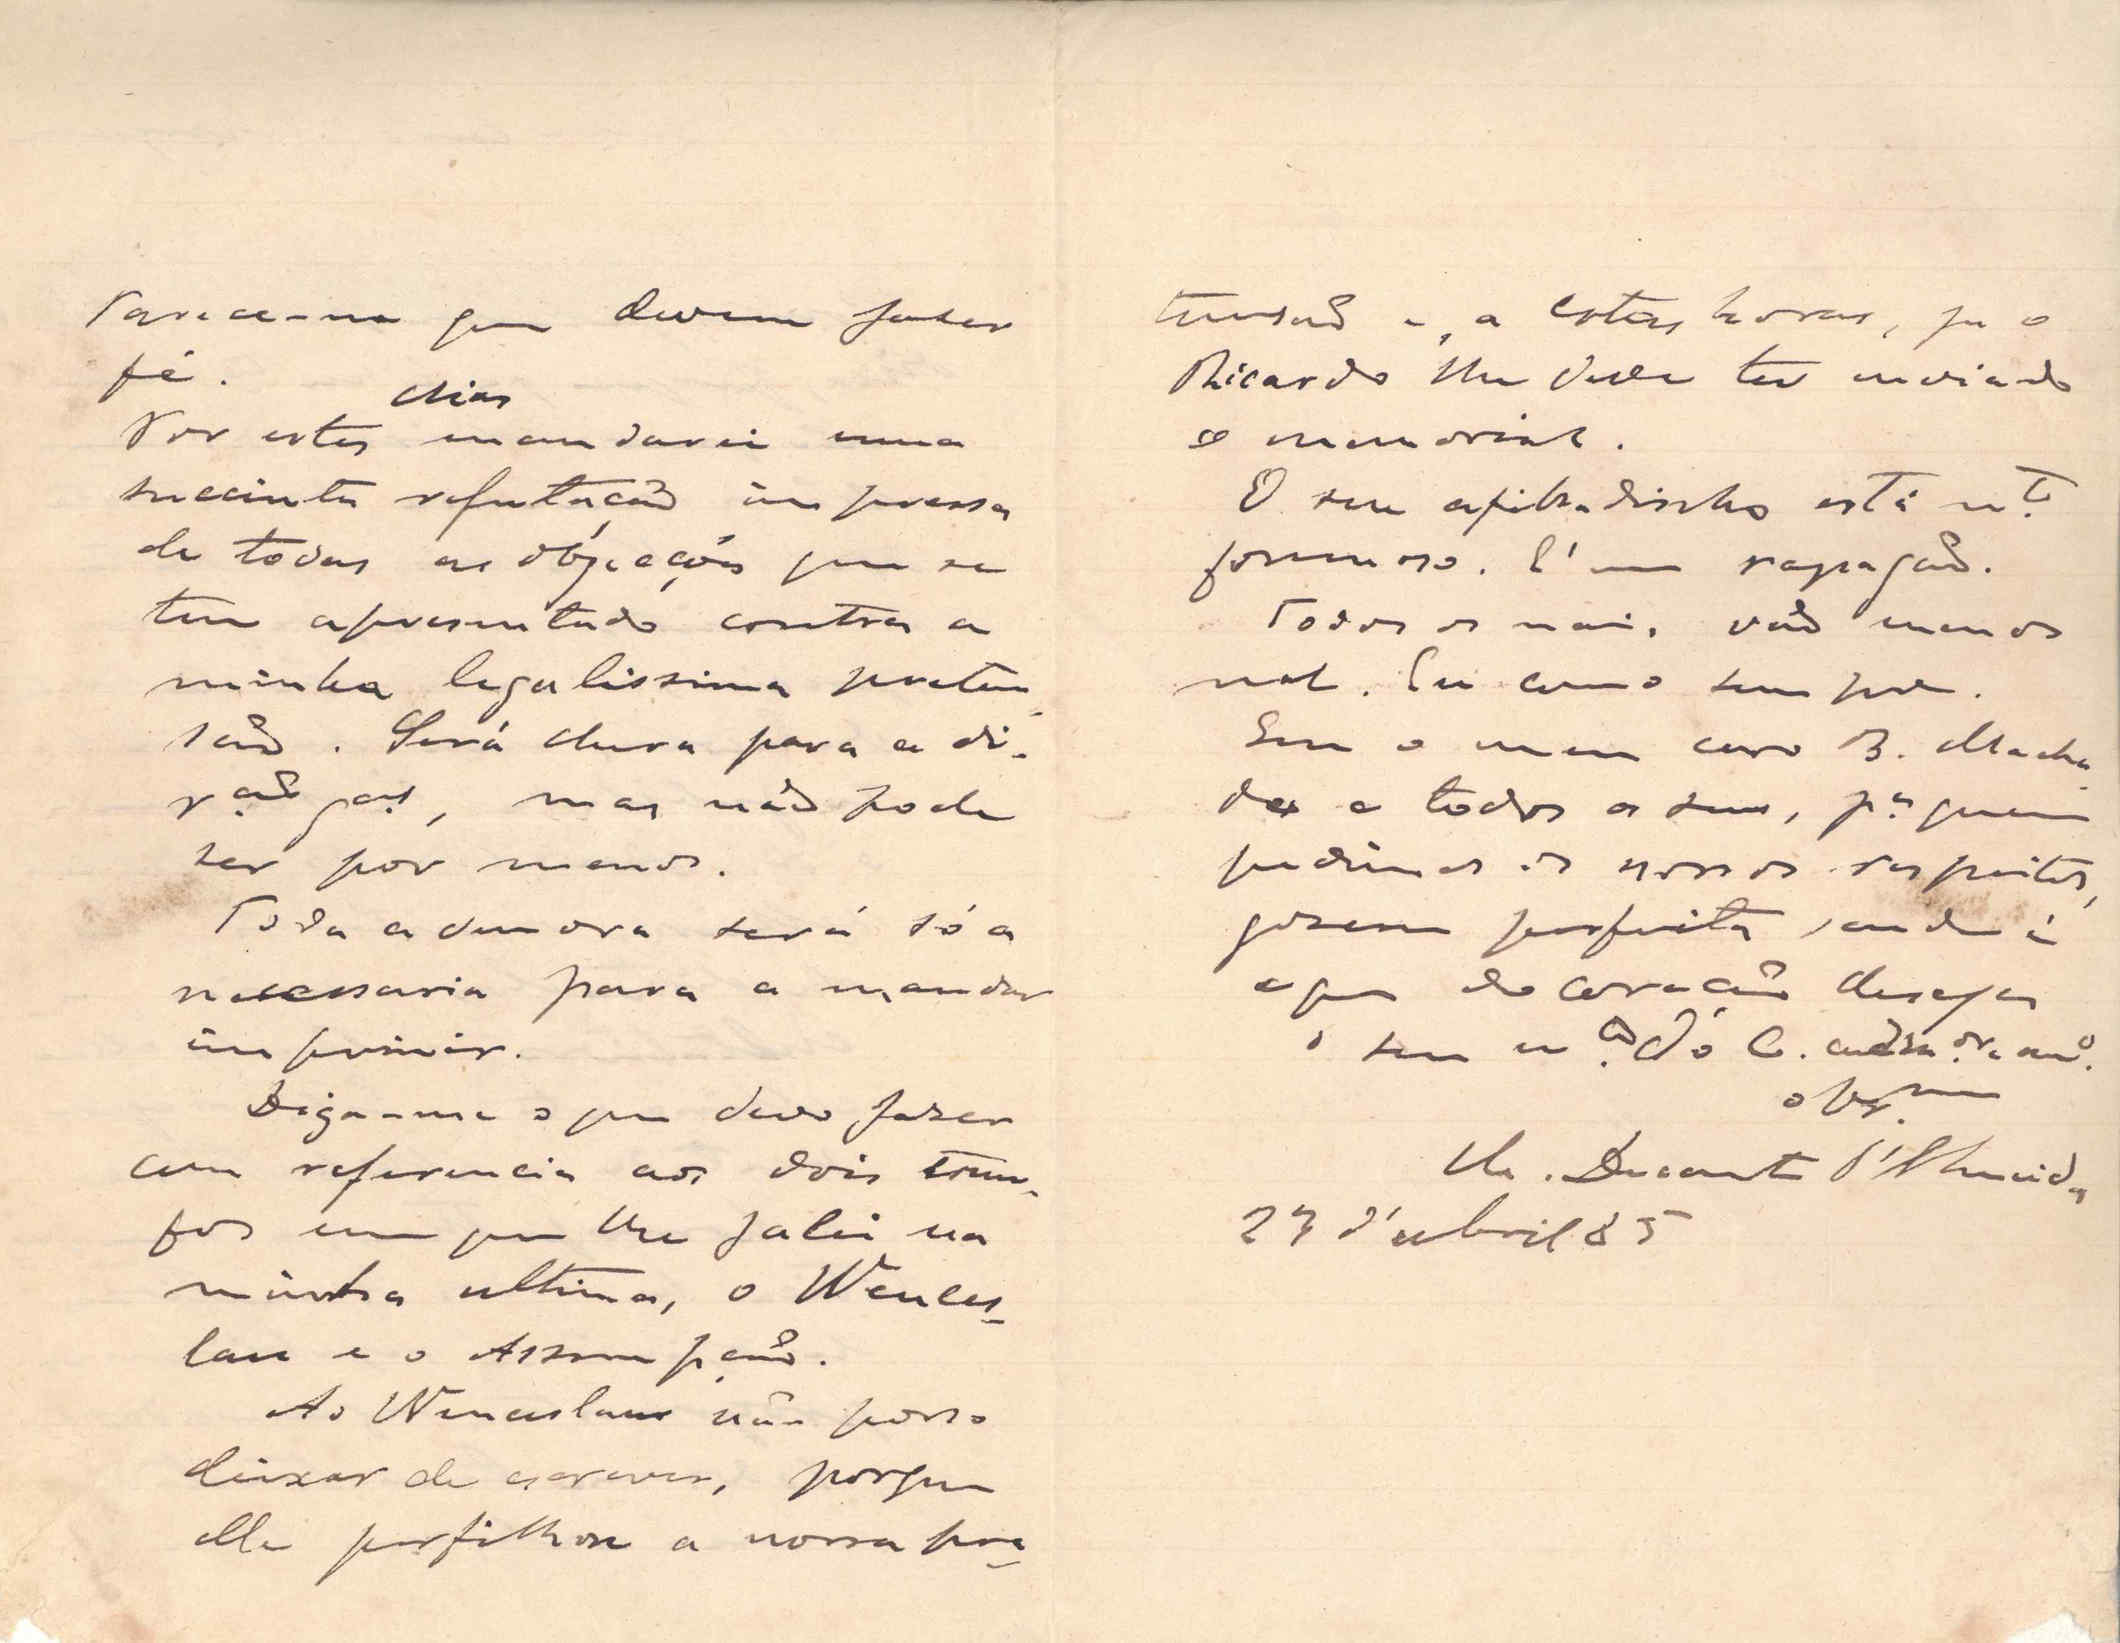 Parece-me que devem fazer
fé.
dias
Por estes mandarei uma
succinta refutação impressa
de todas as objecções que se
tem apresentado contra a
minha legalissima preten-
são. Será dura para a di-
mas não pode
ser por menos.
Toda a demora será só a
necessaria para a mandar
imprimir.
Diga-me o que devo fazer
com referencia aos dois trum-
fos em que lhe falei na
minha ultima, o Wences-
lau e o Assumpção.
Ao Wenceslau não posso
deixar de escrever, porque
elle perfilhou a nossa pre-
tensão e, a estas horas, já o
Ricardo lhe deve ter enviado
o memorial.
O seu afilhadinho está m.to
formoso. E' um rapagão.
Todos os mais vão menos
mal. Eu como sempre.
Que o meu caro B. Macha
do e todos os seus, p.a quem
pedimos os nossos respeitos,
gosem perfeita saude é
o que do coração deseja
o seu C. adm.or e am.o
obg.mo
d'Almeida
27 d'abril 85